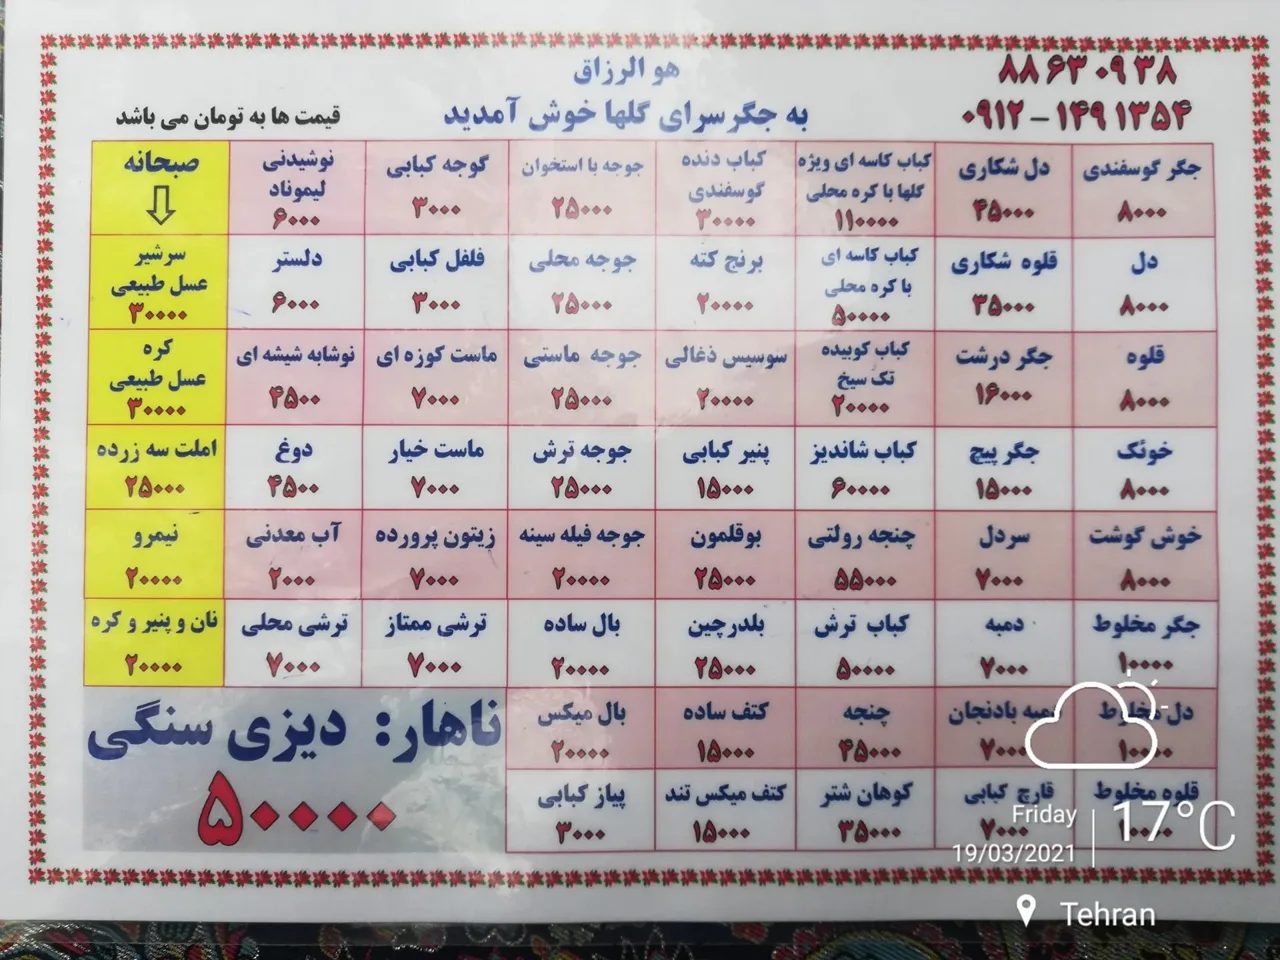 هو الرزاق
۸۸۶۳۰۹۳۸
به جگرسرای گلها خوش آمدید
۰۹۱۲-۱۴۹۱۳۵۴
قیمت ها به تومان می باشد
جگر گوسفندی
۸۰۰۰
دل شکاری
۴۵۰۰۰
کباب کاسه ای ویژه
گلها با کره محلی
۱۱۰۰۰۰
کباب دنده
گوسفندی
۳۰۰۰۰
جوجه با استخوان
۲۵۰۰۰
گوجه کبابی
۳۰۰۰
نوشیدنی
لیموناد
۶۰۰۰
صبحانه
دل
۸۰۰۰
قلوه شکاری
۳۵۰۰۰
کباب کاسه ای
با کره محلی
۵۰۰۰۰
برنج کته
۲۰۰۰۰
جوجه محلی
۲۵۰۰۰
فلفل کبابی
۳۰۰۰
دلستر
۶۰۰۰
سرشیر
عسل طبیعی
۳۰۰۰۰
قلوه
۸۰۰۰
جگر درشت
۱۶۰۰۰
کباب کوبیده
تک سیخ
۲۰۰۰۰
سوسیس ذغالی
۲۰۰۰۰
جوجه ماستی
۲۵۰۰۰
ماست کوزه ای
۷۰۰۰
نوشابه شیشه ای
۴۵۰۰
کره
عسل طبیعی
۳۰۰۰۰
خوئک
۸۰۰۰
جگر پیچ
۱۵۰۰۰
کباب شاندیز
۶۰۰۰۰
پنیر کبابی
۱۵۰۰۰
جوجه ترش
۲۵۰۰۰
ماست خیار
۷۰۰۰
دوغ
۴۵۰۰
املت سه زرده
۲۵۰۰۰
خوش گوشت
۸۰۰۰
سردل
۷۰۰۰
چنجه رولتی
۵۵۰۰۰
بوقلمون
۲۵۰۰۰
جوجه فیله سینه
۲۰۰۰۰
زیتون پرورده
۷۰۰۰
آب معدنی
۲۰۰۰
نیمرو
۲۰۰۰۰
جگر مخلوط
۱۰۰۰۰
دمبه
۷۰۰۰
کباب ترش
۵۰۰۰۰
بلدرچین
۲۵۰۰۰
بال ساده
۲۰۰۰۰
ترشی ممتاز
۷۰۰۰
ترشی محلی
۷۰۰۰
نان و پنیر و کره
۲۰۰۰۰
دل مخلوط
۱۰۰۰۰
دمبه بادنجان
۷۰۰۰
چنجه
۴۵۰۰۰
کتف ساده
۱۵۰۰۰
بال میکس
۲۰۰۰۰
ناهار: دیزی سنگی
۵۰۰۰۰
قلوه مخلوط
۱۰۰۰۰
قارچ کبابی
۷۰۰۰
کوهان شتر
۳۵۰۰۰
کتف میکس تند
۱۵۰۰۰
پیاز کبابی
۳۰۰۰
Friday
19/03/2021
17°C
Tehran